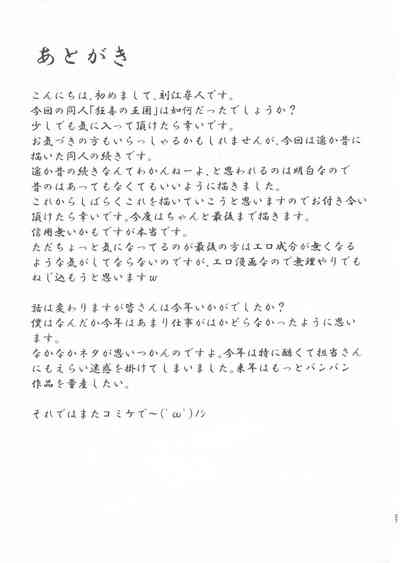 あとがき
こんにちは、初めまして、刻江尋人です。
今回の同人「狂毒の王国」は如何だったでしょうか?
少しでも気に入って頂けたら幸いです。
お気づきの方もいらっしゃるかもしれませんが、今回は遥か昔に
描いた同人の続きです。
遥か昔の続きなんてわかんねーよ、と思われるのは明白なので
昔のはあってもなくてもいいように描きました。
これからしばらくこれを描いていこうと思いますのでお付き合い
頂けたら幸いです。今度はちゃんと最後まで描きます。
信用無いかもですが本当です。
ただちょっと気になってるのが最後の方はエロ成分が無くなる
ような気がしてならないのですが、エロ漫画なので無理やりでも
ねじ込もうと思いますw
話は変わりますが皆さんは今年いかがでしたか?
僕はなんだか今年はあまり仕事がはかどらなかったように思い
ます。
なかなかネタが思いつかんのですよ。今年は特に酷くて担当さん
にもえらい迷惑を掛けてしまいました。来年はもっとバンバン
作品を量産したい。
それではまたコミケで〜(´ω`)ノシ